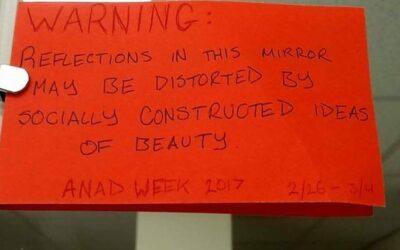 WARNING:
REFLECTIONS IN THIS MIRROR
MAY BE DISTORTED BY
SOCIALLY CONSTRUCTED IDEAS
OF BEAUTY.
ANAD WEEK 2017 2/26 - 3/4